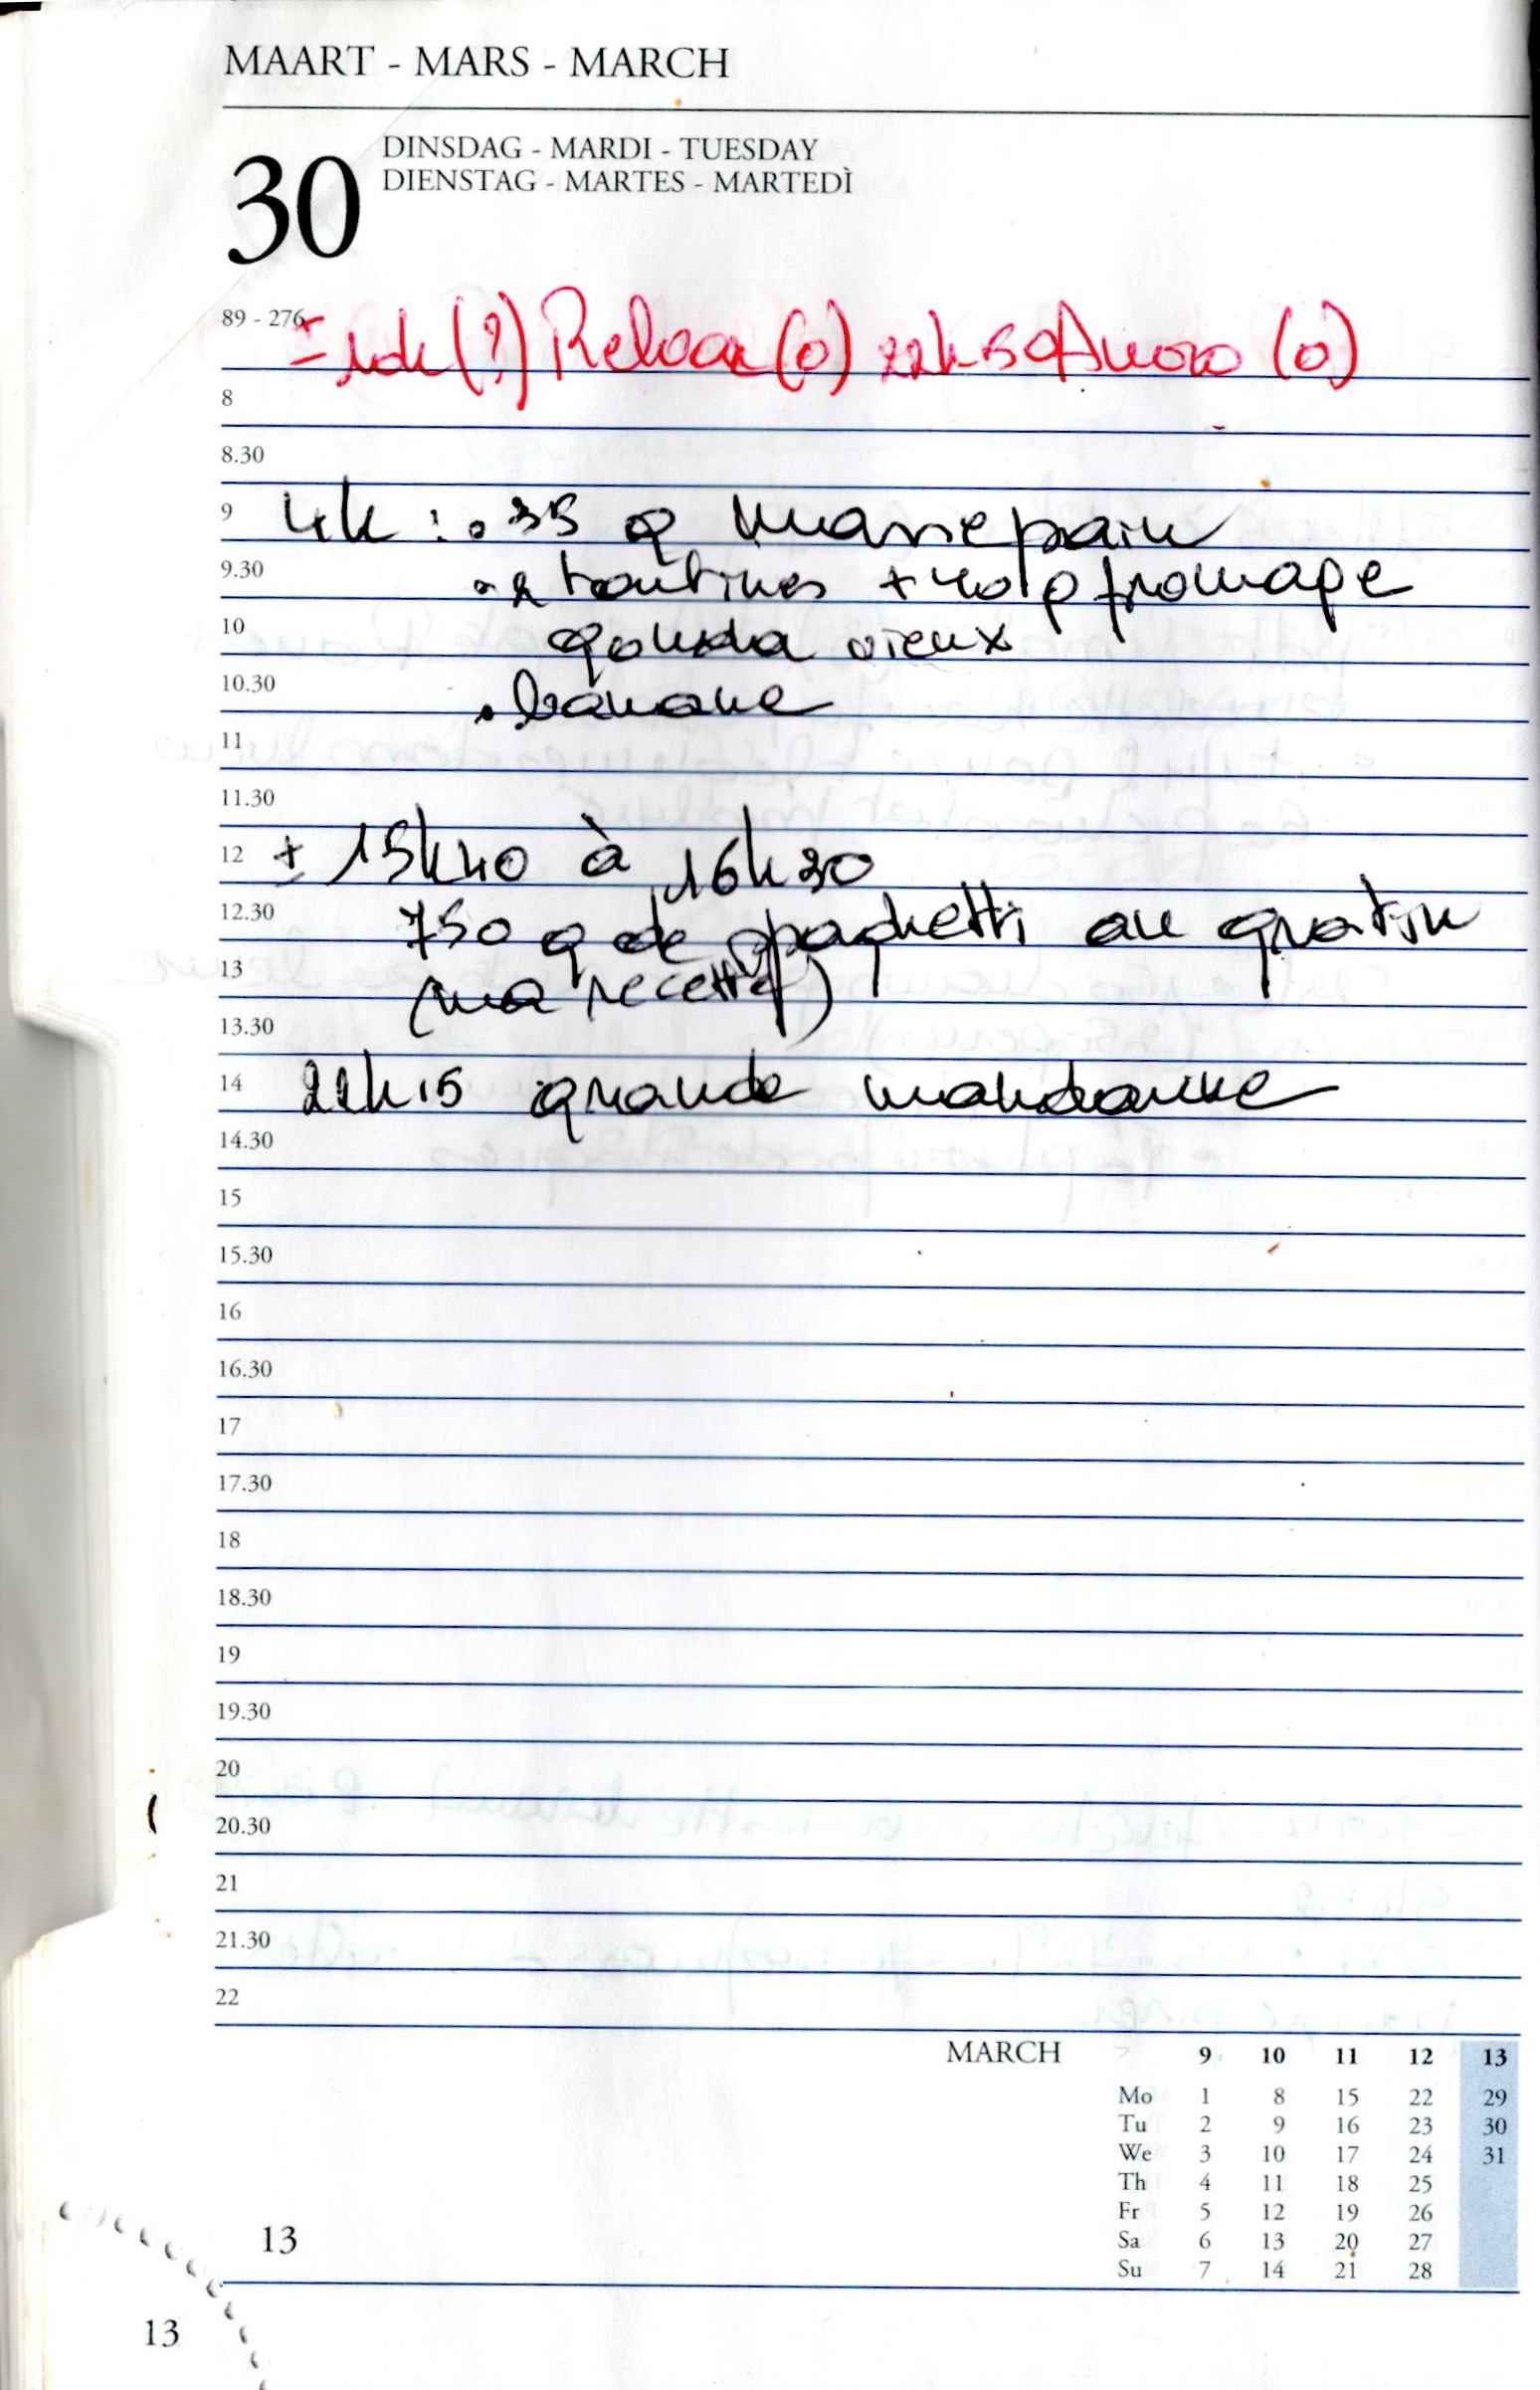 MAART - MARS - MARCH
30
DINSDAG - MARDI - TUESDAY
DIENSTAG - MARTES - MARTEDÌ
89 - 276
± (?) Relvar (0) 22h50 (0)
8
8.30
9 4h : . 35 g massepain
9.30 . 2 tartines + 40 g fromage
10 gouda vieux
10.30 . banane
11
11.30
12 ± 15h40 à 16h30
12.30 750 g de spaghetti au gratin
13 (ma recette)
13.30
14 22h15 grande mandarine
14.30
15
15.30
16
16.30
17
17.30
18
18.30
19
19.30
20
20.30
21
21.30
22
MARCH 9 10 11 12 13
Mo 1 8 15 22 29
Tu 2 9 16 23 30
We 3 10 17 24 31
Th 4 11 18 25
Fr 5 12 19 26
Sa 6 13 20 27
Su 7 14 21 28
13
13